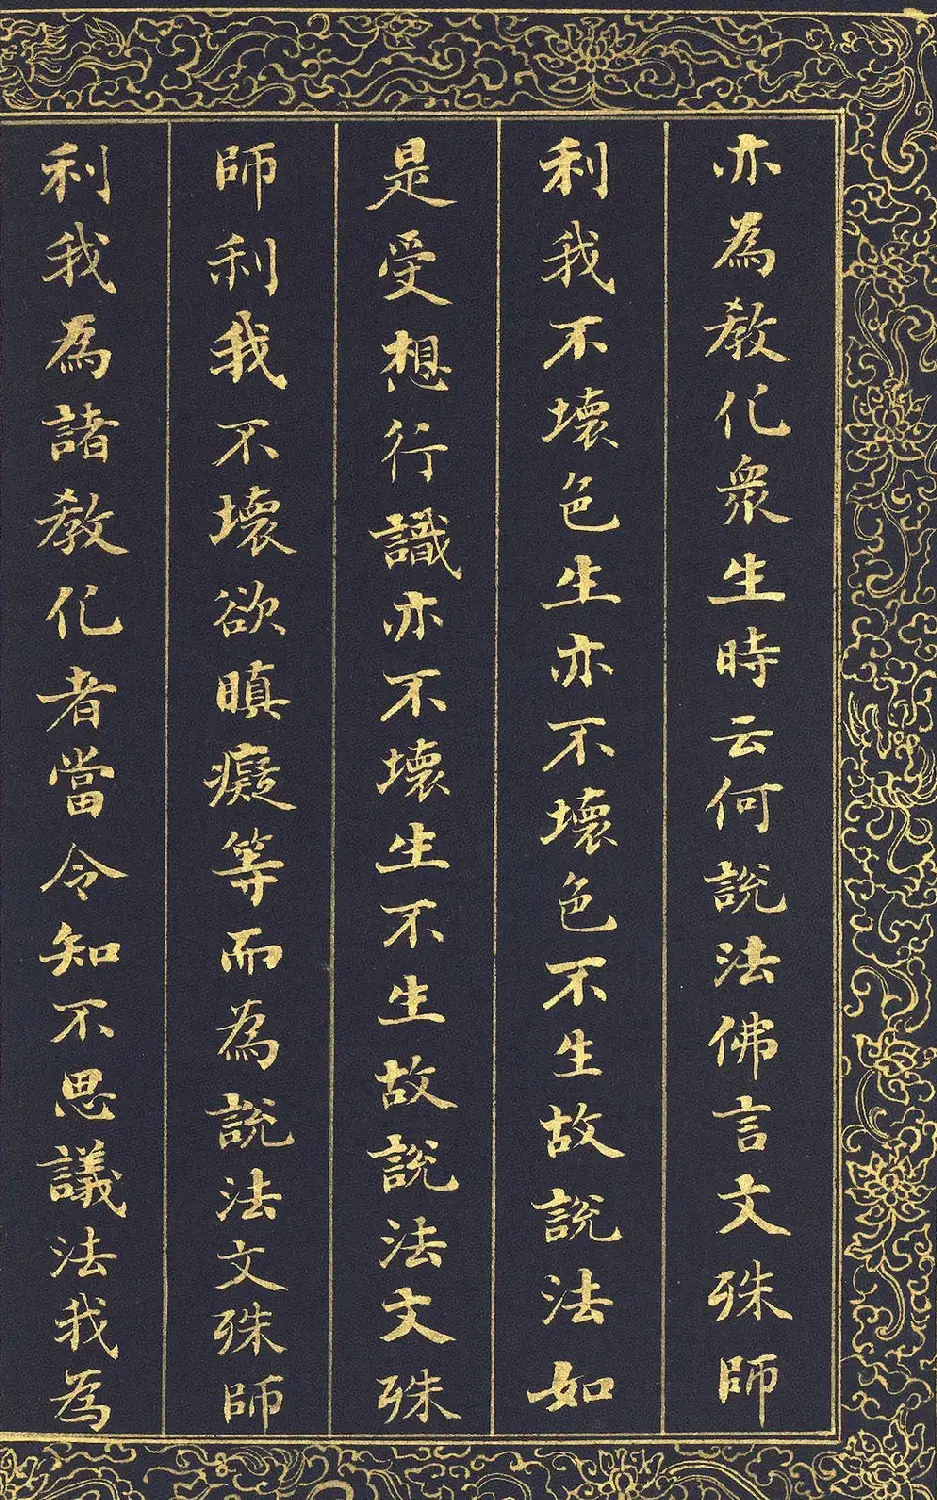 亦為教化衆生時云何說法佛言文殊師
利我不壞色生亦不壞色不生故說法如
是受想行識亦不壞生不生故說法文殊
師利我不壞欲瞋癡等而為說法文殊師
利我為諸教化者當令知不思議法我為